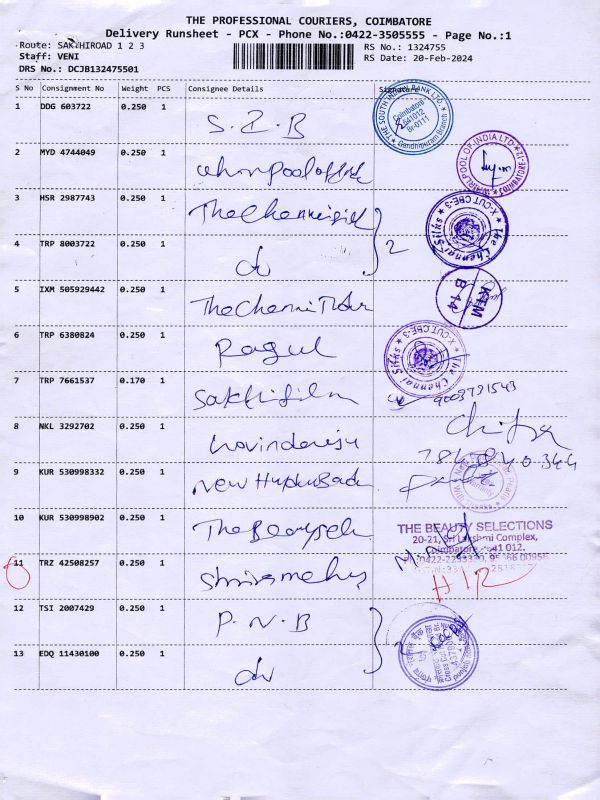 THE PROFESSIONAL COURIERS, COIMBATORE
Delivery Runsheet - PCX - Phone No.:0422-3505555 - Page No.:1
Route: SAKTHIROAD 1 2 3
Staff: VENI
DRS No.: DCJB132475501
RS No.: 1324755
RS Date: 20-Feb-2024
S No Consignment No Weight PCS Consignee Details Signature
1 DDG 603722 0.250 1 S.I.B
THE SOUTH INDIAN BANK LTD. Coimbatore 641012 Br-0111 Gandhipuram Branch
2 MYD 4744049 0.250 1
WHIRLPOOL OF INDIA LTD COIMBATORE-12
3 HSR 2987743 0.250 1 The Chennai
The Chennai Silks X-CUT CBE-3
4 TRP 8003722 0.250 1 do 2
5 IXM 505929442 0.250 1 The Chennai
KTM B 14
6 TRP 6380824 0.250 1 Ragul
The Chennai Silks X-CUT CBE-3
7 TRP 7661537 0.170 1 Sakthi film
9003791543
8 NKL 3292702 0.250 1
9 KUR 530998332 0.250 1 New Hyderabad
10 KUR 530998902 0.250 1 The Beauty
THE BEAUTY SELECTIONS
20-21, Sri Lakshmi Complex,
Coimbatore - 641 012.
11 TRZ 42508257 0.250 1
12 TSI 2007429 0.250 1 P.N.B
13 EDQ 11430100 0.250 1 do 2